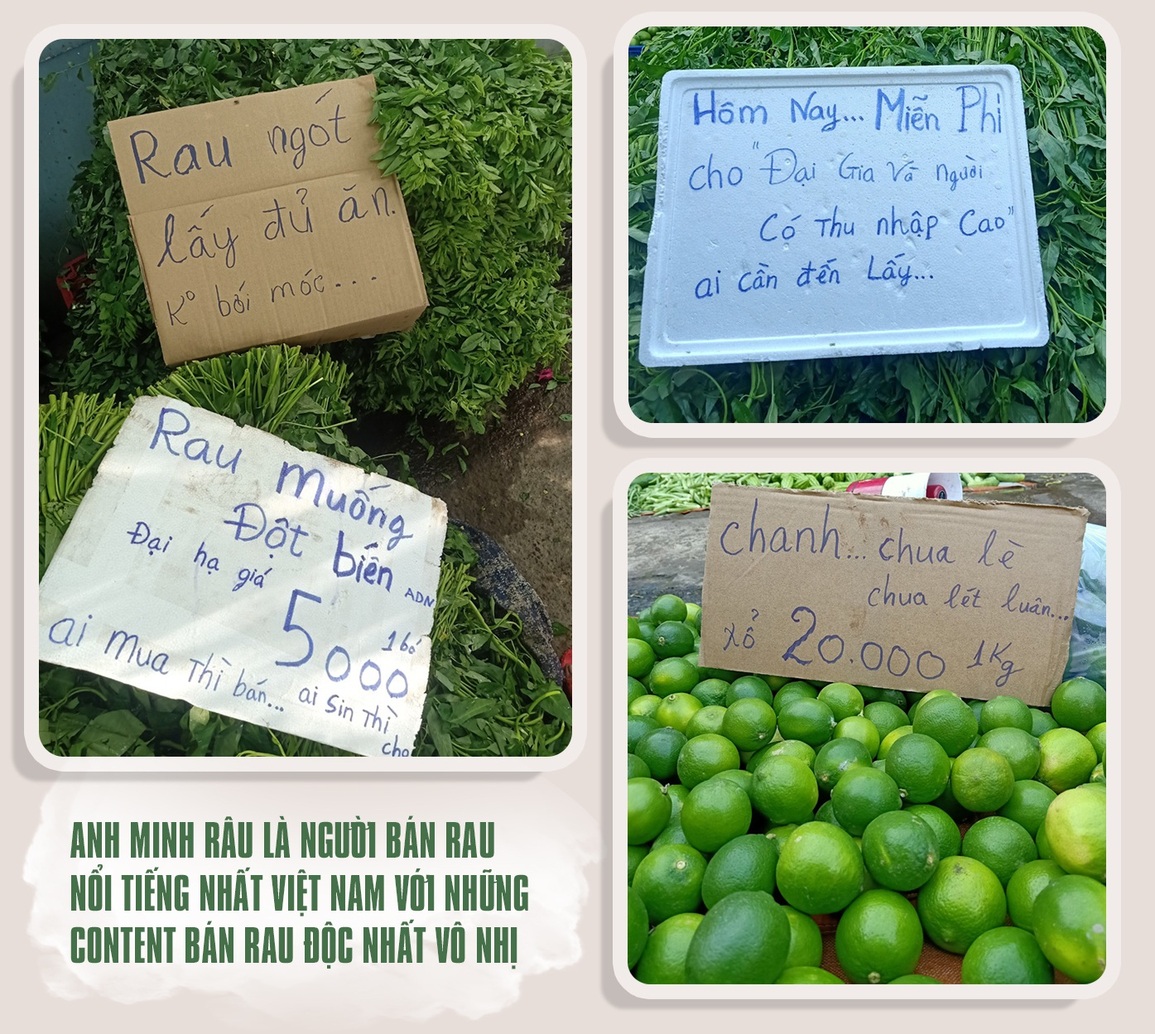 Rau ngót
lấy đủ ăn.
K° bới móc...
Rau Muống
Đột biến ADN
Đại hạ giá
5000 1 bó
ai Mua Thì bán... ai Sin Thì
cho
Hôm Nay... Miễn Phí
cho "Đại Gia Và người
Có Thu nhập Cao"
ai cần đến Lấy...
chanh... chua lè
chua lét luân...
xổ 20.000 1Kg
ANH MINH RÂU LÀ NGƯỜI BÁN RAU
NỔI TIẾNG NHẤT VIỆT NAM VỚI NHỮNG
CONTENT BÁN RAU ĐỘC NHẤT VÔ NHỊ